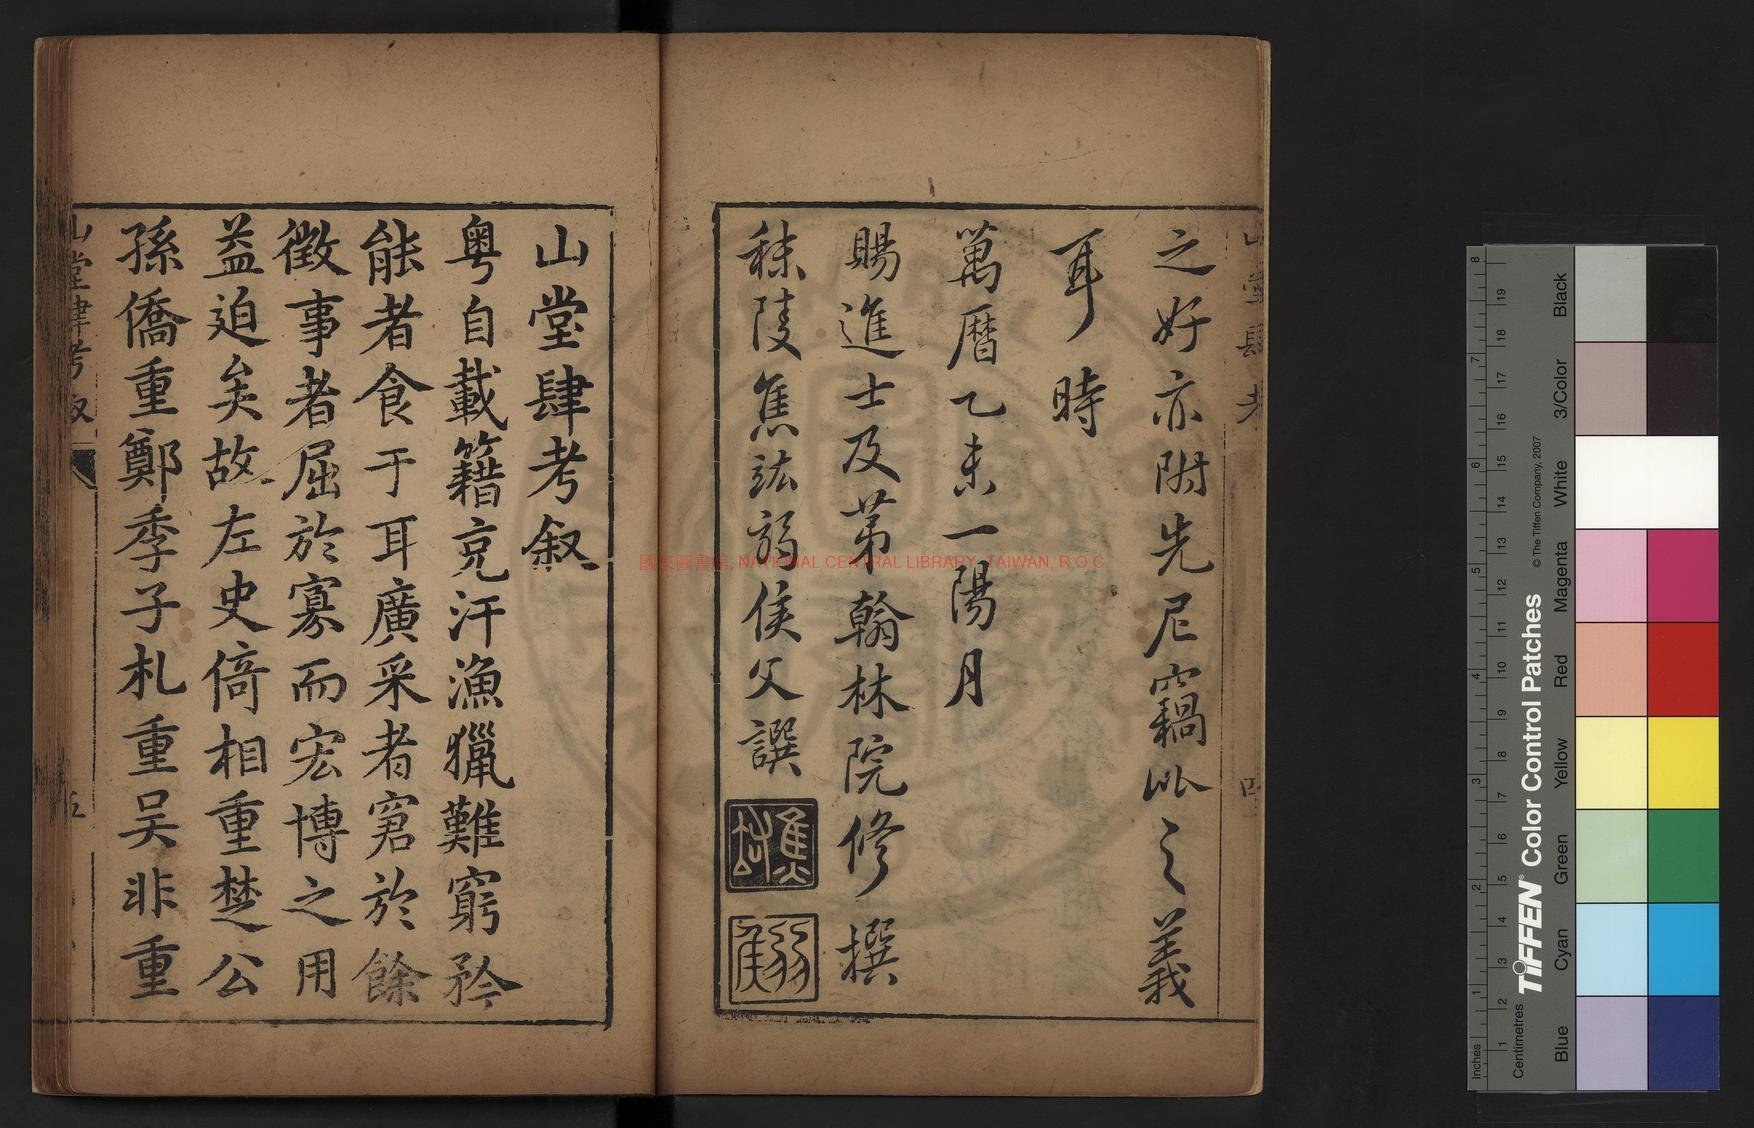 之好亦附先尼竊比之義
耳時
萬曆乙未一陽月
賜進士及第翰林院修撰
秣陵焦竑弱侯父譔
焦竑
弱侯
山堂肆考叙
粵自載籍克汗漁獵難窮矜
能者食于耳廣采者窘於餘
徵事者屈於寡而宏博之用
益迫矣故左史倚相重楚公
孫僑重鄭季子札重吴非重
山堂肆考
國家圖書館, NATIONAL CENTRAL LIBRARY, TAIWAN, R O C
Inches
Centimetres
TIFFEN® Color Control Patches
© The Tiffen Company, 2007
Blue
Cyan
Green
Yellow
Red
Magenta
White
3/Color
Black